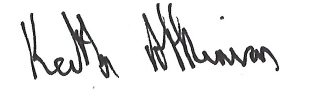 Keith Atkinson